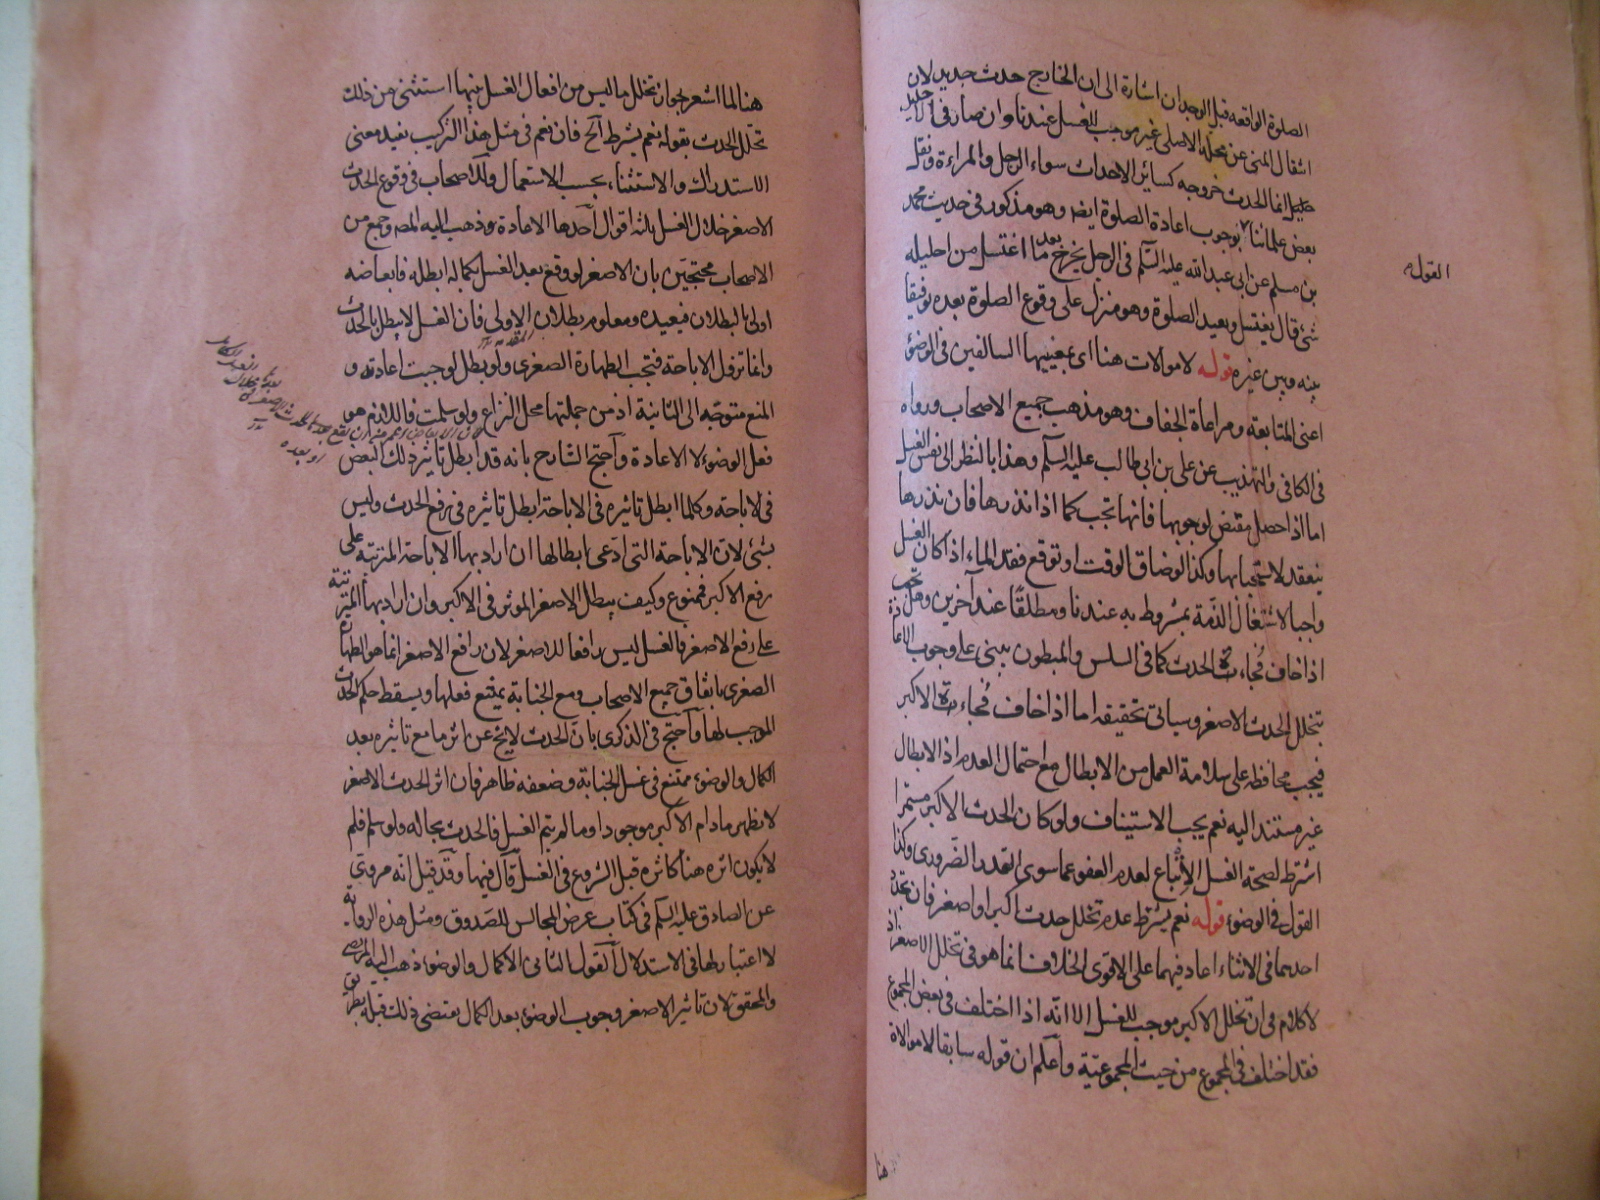 الصلوة الواقعه قبل الوجدان اشارة الى ان الخارج حدث جديد لان
انتقال المنى عن محله الاصلى غير موجب للغسل عندنا وان صار فى الاحليل
انما الحدث خروجه كسائر الاحداث سواء الرجل والمراءة ونقل
بعض علمائنا بوجوب اعادة الصلوة ايضا وهو مذكور فى حديث محمد
بن مسلم عن ابى عبدالله عليه السّلم فى الرجل يخرج بعد ما اغتسل من احليله
شئ قال يغتسل ويعيد الصلوة وهو منزل على وقوع الصلوة بعده توفيقا
بينه وبين غيره قوله لا موالات هنا اى بمعنييها السالفين فى الوضوء
اعنى المتابعة ومراعاة الجفاف وهو مذهب جميع الاصحاب ورواه
فى الكافى والتهذيب عن على بن ابى طالب عليه السّلم وهذا بالنظر الى نفس الغسل
اما اذا حصل مقتض لوجوبها فانها تجب كما اذا نذرها فان نذرها
ينعقد لاستحبابها وكذا لو ضاق الوقت او توقع فقد الماء اذا كان الغسل
واجبا لاشتغال الذمة بمشروط به عندنا ومطلقًا عند آخرين وهل تجب
اذا خاف فُجاءة الحدث كما فى السلس والمبطون يبنى على وجوب الاعادة
بتخلل الحدث الاصغر وسياتى تحقيقه اما اذا خاف فُجاءة الاكبر
فيجب محافظة على سلامة العمل من الابطال مع احتمال العدم اذ الابطال
غير مستند اليه نعم يجب الاستيناف ولو كان الحدث الاكبر مستمرا
اشترط لصحة الغسل الاتباع لعدم العفو عما سوى القدر الضّرورى وكذا
القول فى الوضوء قوله نعم يشترط عدم تخلل حدث اكبر او اصغر فان تجدد
احدهما فى الاثناء اعاد فيهما على الاقوى الخلاف انما هو فى تخلل الاصغر اذ
لا كلام فى ان تخلل الاكبر موجب للغسل الا انّه اذا اختلف فى بعض المجموع
فقد اختلف فى المجموع من حيث المجموعيّة واعلم ان قوله سابقا لا موالاة
هنا
القول
هنا لما اشعر بجواز تخلل ما ليس من افعال الغسل بينها استثنى من ذلك
تخلّل الحدث بقوله نعم يشترط آلخ فان نعم فى مثل هذا التركيب يفيد معنى
الاستدراك والاستثناء بحسب الاستعمال وللاصحاب فى وقوع الحدث
الاصغر خلال الغسل ثلثه اقوال احدها الاعادة وذهب اليه المصه وجمع من
الاصحاب محتجّين بان الاصغر لو وقع بعد الغسل بكماله ابطله فابعاضه
اولى بالبطلان فيعيده ومعلوم بطلان الاولى فان الغسل لا يبطل بالحدث
وانما تزول الاباحة فتجب الطهارة الصغرى ولو بطل لوجبت اعادته و
المنع متوجّه الى الثانية اذ من جملتها محل النزاع ولو سلمت فاللازم هو
فعل الوضوء لا الاعادة واحتج الشارح بانه قد ابطل تاثير ذلك البعض
فى الاباحة وكلما ابطل تاثيره فى الاباحة ابطل تاثيره فى رفع الحدث وليس
بشئ لان الاباحة التى ادّعى ابطالها ان اراد بها الاباحة المترتبّة على
رفع الاكبر فممنوع وكيف يبطل الاصغر الموثر فى الاكبر وان اراد بها المترتبة
على رفع الاصغر فالغسل ليس رافعا للاصغر لان رافع الاصغر انما هو الطهارة
الصغرى باتفاق جميع الاصحاب ومع الجنابة يمتنع فعلها ويسقط حكم الحدث
الموجب لها واحتج فى الذكرى بان الحدث لا يخ عن اثر ما مع تاثيره بعد
الكمال والوضوء ممتنع فى غسل الجنابة وضعفه ظاهر فان اثر الحدث الاصغر
لا يظهر مادام الاكبر موجودا وما لم يتم الغسل فالحدث بحاله ولو سلم فلم
لا يكون اثره هنا كاثره قبل الشروع فى الغسل قال فيها وقد قيل انّه مروى
عن الصادق عليه السلم فى كتاب عرض المجالس للصدوق ومثل هذه الرواية
لا اعتبار لها فى الاستدلال القول الثانى الاكمال والوضوء ذهب اليه المرتضى
والمحقق لان تاثير الاصغر وجوب الوضوء بعد الكمال يقتضى ذلك قبله بطريق